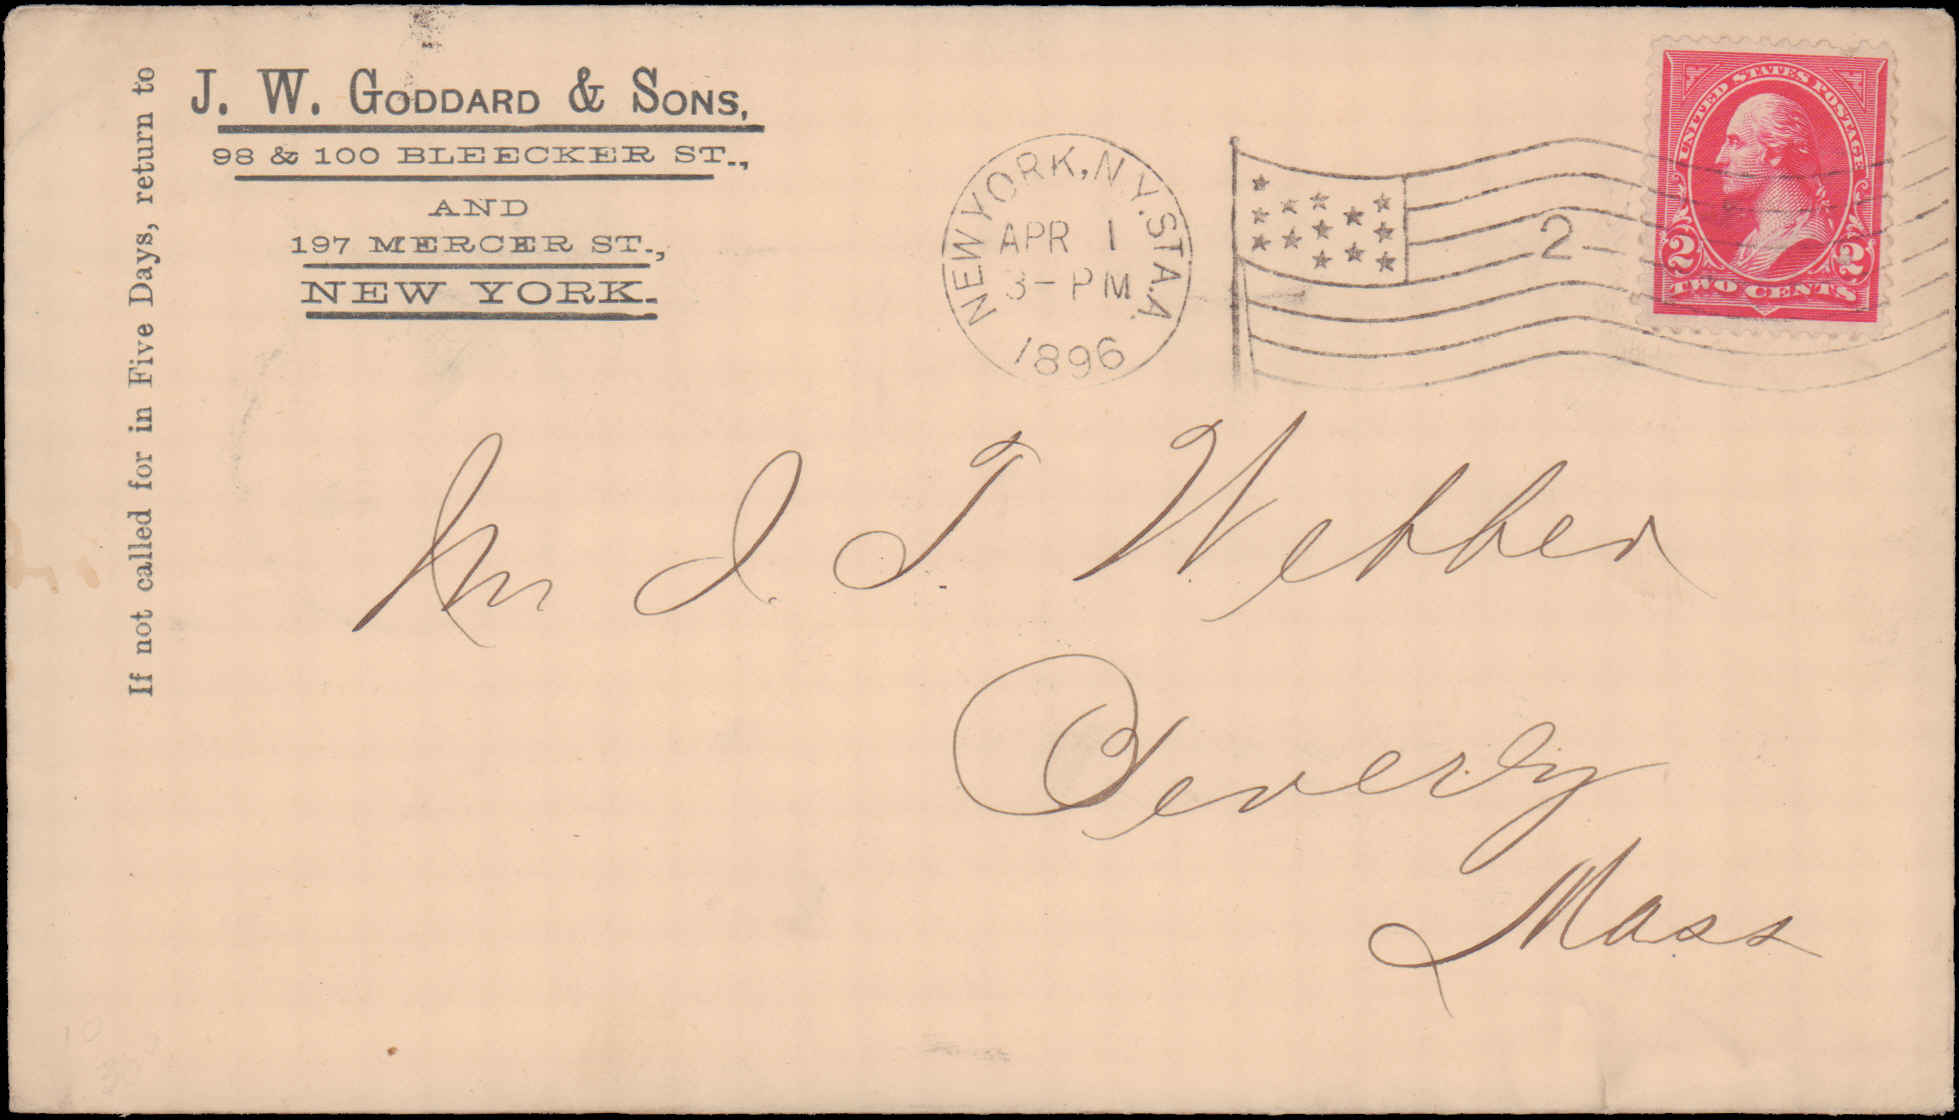 If not called for in Five Days, return to
J. W. GODDARD & SONS,
98 & 100 BLEECKER ST.,
AND
197 MERCER ST.,
NEW YORK.
NEW YORK, N.Y. STA. A.
APR 1
3-PM
1896
2
UNITED STATES POSTAGE
2 2
TWO CENTS
Mr J. T. Webber
Beverly
Mass